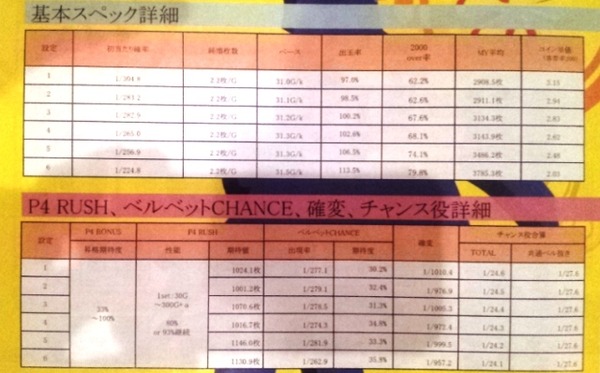 基本スペック詳細
設定 初当たり確率 純増枚数 ベース 出玉率 2000over率 MY平均 コイン単価
1 1/304.8 2.2枚/G 31.0G/k 97.0% 62.2% 2908.5枚 3.15
2 1/283.2 2.2枚/G 31.1G/k 98.5% 62.6% 2911.1枚 2.94
3 1/282.9 2.2枚/G 31.2G/k 100.2% 67.6% 3134.3枚 2.83
4 1/265.0 2.2枚/G 31.3G/k 102.6% 68.1% 3143.9枚 2.62
5 1/256.9 2.2枚/G 31.3G/k 106.5% 74.1% 3486.2枚 2.48
6 1/224.8 2.2枚/G 31.5G/k 113.5% 79.8% 3785.3枚 2.03
P4 RUSH、ベルベットCHANCE、確変、チャンス役詳細
設定 P4 BONUS P4 RUSH ベルベットCHANCE 確変 チャンス役合算
昇格期待度 性能 期待値 出現率 期待度 TOTAL 共通ベル抜き
1 1024.1枚 1/277.1 30.2% 1/1010.4 1/24.6 1/27.6
2 1001.2枚 1/279.1 32.4% 1/976.9 1/24.5 1/27.6
3 33%～100% 1set:30G～300G+α 1070.6枚 1/278.5 31.3% 1/1005.3 1/24.4 1/27.6
4 80%or 93%継続 1016.7枚 1/274.3 34.6% 1/972.4 1/24.3 1/27.6
5 1146.0枚 1/281.9 33.3% 1/999.5 1/24.2 1/27.6
6 1130.9枚 1/262.9 35.8% 1/957.2 1/24.1 1/27.6